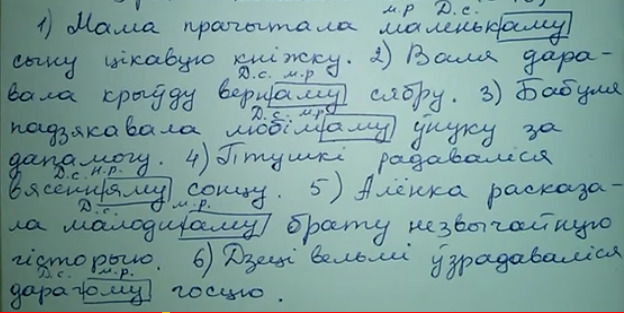 м.р Д.с.
1) Мама прачытала маленькаму
сыну цікавую кніжку. 2) Валя дара-
Д.с. м.р
вала крыўду вернаму сябру. 3) Бабуля
Д.с. м.р.
падзякавала любімаму ўнуку за
дапамогу. 4) Птушкі радаваліся
Д.с. н.р.
вясенняму сонцу. 5) Алёнка расказа-
Д.с. м.р.
ла малодшаму брату незвычайную
гісторыю. 6) Дзеці вельмі ўзрадаваліся
Д.с. м.р.
дарагому госцю.